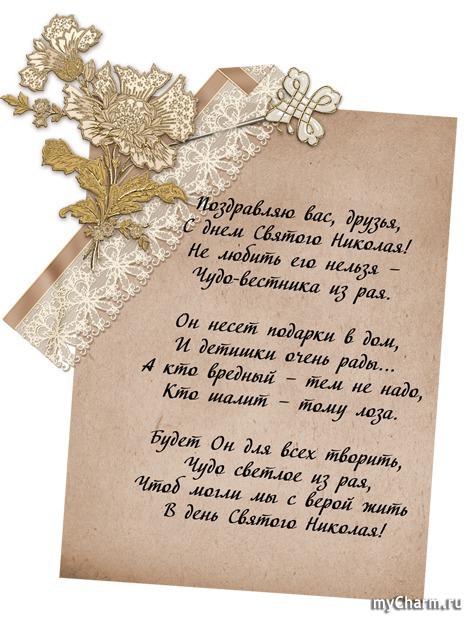 Поздравляю вас, друзья,
С днем Святого Николая!
Не любить его нельзя –
Чудо-вестника из рая.

Он несет подарки в дом,
И детишки очень рады...
А кто вредный – тем не надо,
Кто шалит – тому лоза.

Будет Он для всех творить,
Чудо светлое из рая,
Чтоб могли мы с верой жить
В день Святого Николая!

myCharm.ru